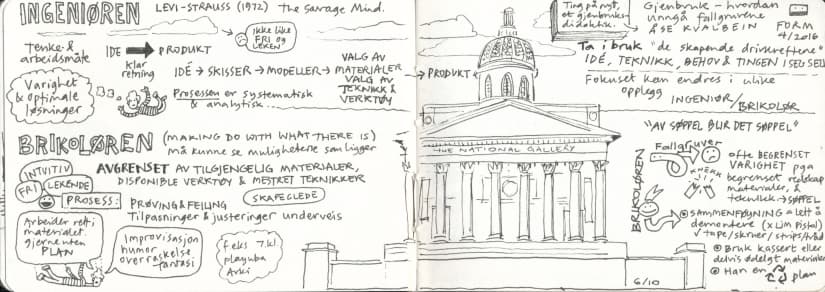 INGENIØREN
LEVI-STRAUSS (1972) the savage Mind.
Ikke like
FRI og
LEKEN
Tenke- &
arbeidsmåte
IDE → PRODUKT
Klar
retning
Varighet
& optimale
løsninger
IDÉ → SKISSER → MODELLER → VALG AV
MATERIALER
VALG AV
TEKNIKK &
VERKTØY
→ PRODUKT
Prosessen er systematisk
& analytisk...
BRIKOLØREN (MAKING DO WITH WHAT THERE IS)
må kunne se mulighetene som ligger
INTUITIV
FRI
LEKENDE
AVGRENSET AV TILGJENGELIG MATERIALER,
DISPONIBLE VERKTØY & MESTRET TEKNIKKER
SKAPEGLEDE
PROSESS:
PRØVING & FEILING
Tilpasninger & justeringer underveis
Arbeider rett i
materialet
gjerne uten
PLAN
Improvisasjon
humor
overraskelse
fantasi
f.eks 7.kl
THE NATIONAL GALLERY
6/10
Ting på nytt,
et gjenbruks-
didaktikk.
Gjenbruk – hvordan
unngå fallgruvene
ÅSE KVALBEIN
FORM
4/2016
Ta i bruk "de skapende drivkreftene"
IDE, TEKNIKK, BEHOV & TINGEN I SEG SELV
Fokuset kan endres i ulike
opplegg
INGENIØR/
BRIKOLØR
"AV SØPPEL BLIR DET SØPPEL"
BRIKOLØREN
Fallgruver
KNEKK
ofte BEGRENSET
VARIGHET pga
begrenset redskap
materialer, &
teknikk → SØPPEL
SAMMENFØYNING = lett å
demontere (x Lim Pistol)
✓ tape/skruer/strips/tråd
Bruk kassert eller
delvis ødelagt materialer
Ha en plan